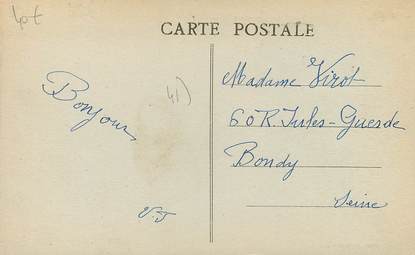 Lot
CARTE POSTALE
41)
Bonjour,
V-J
Madame Virot
60 R. Jules-Guesde
Bondy
Seine